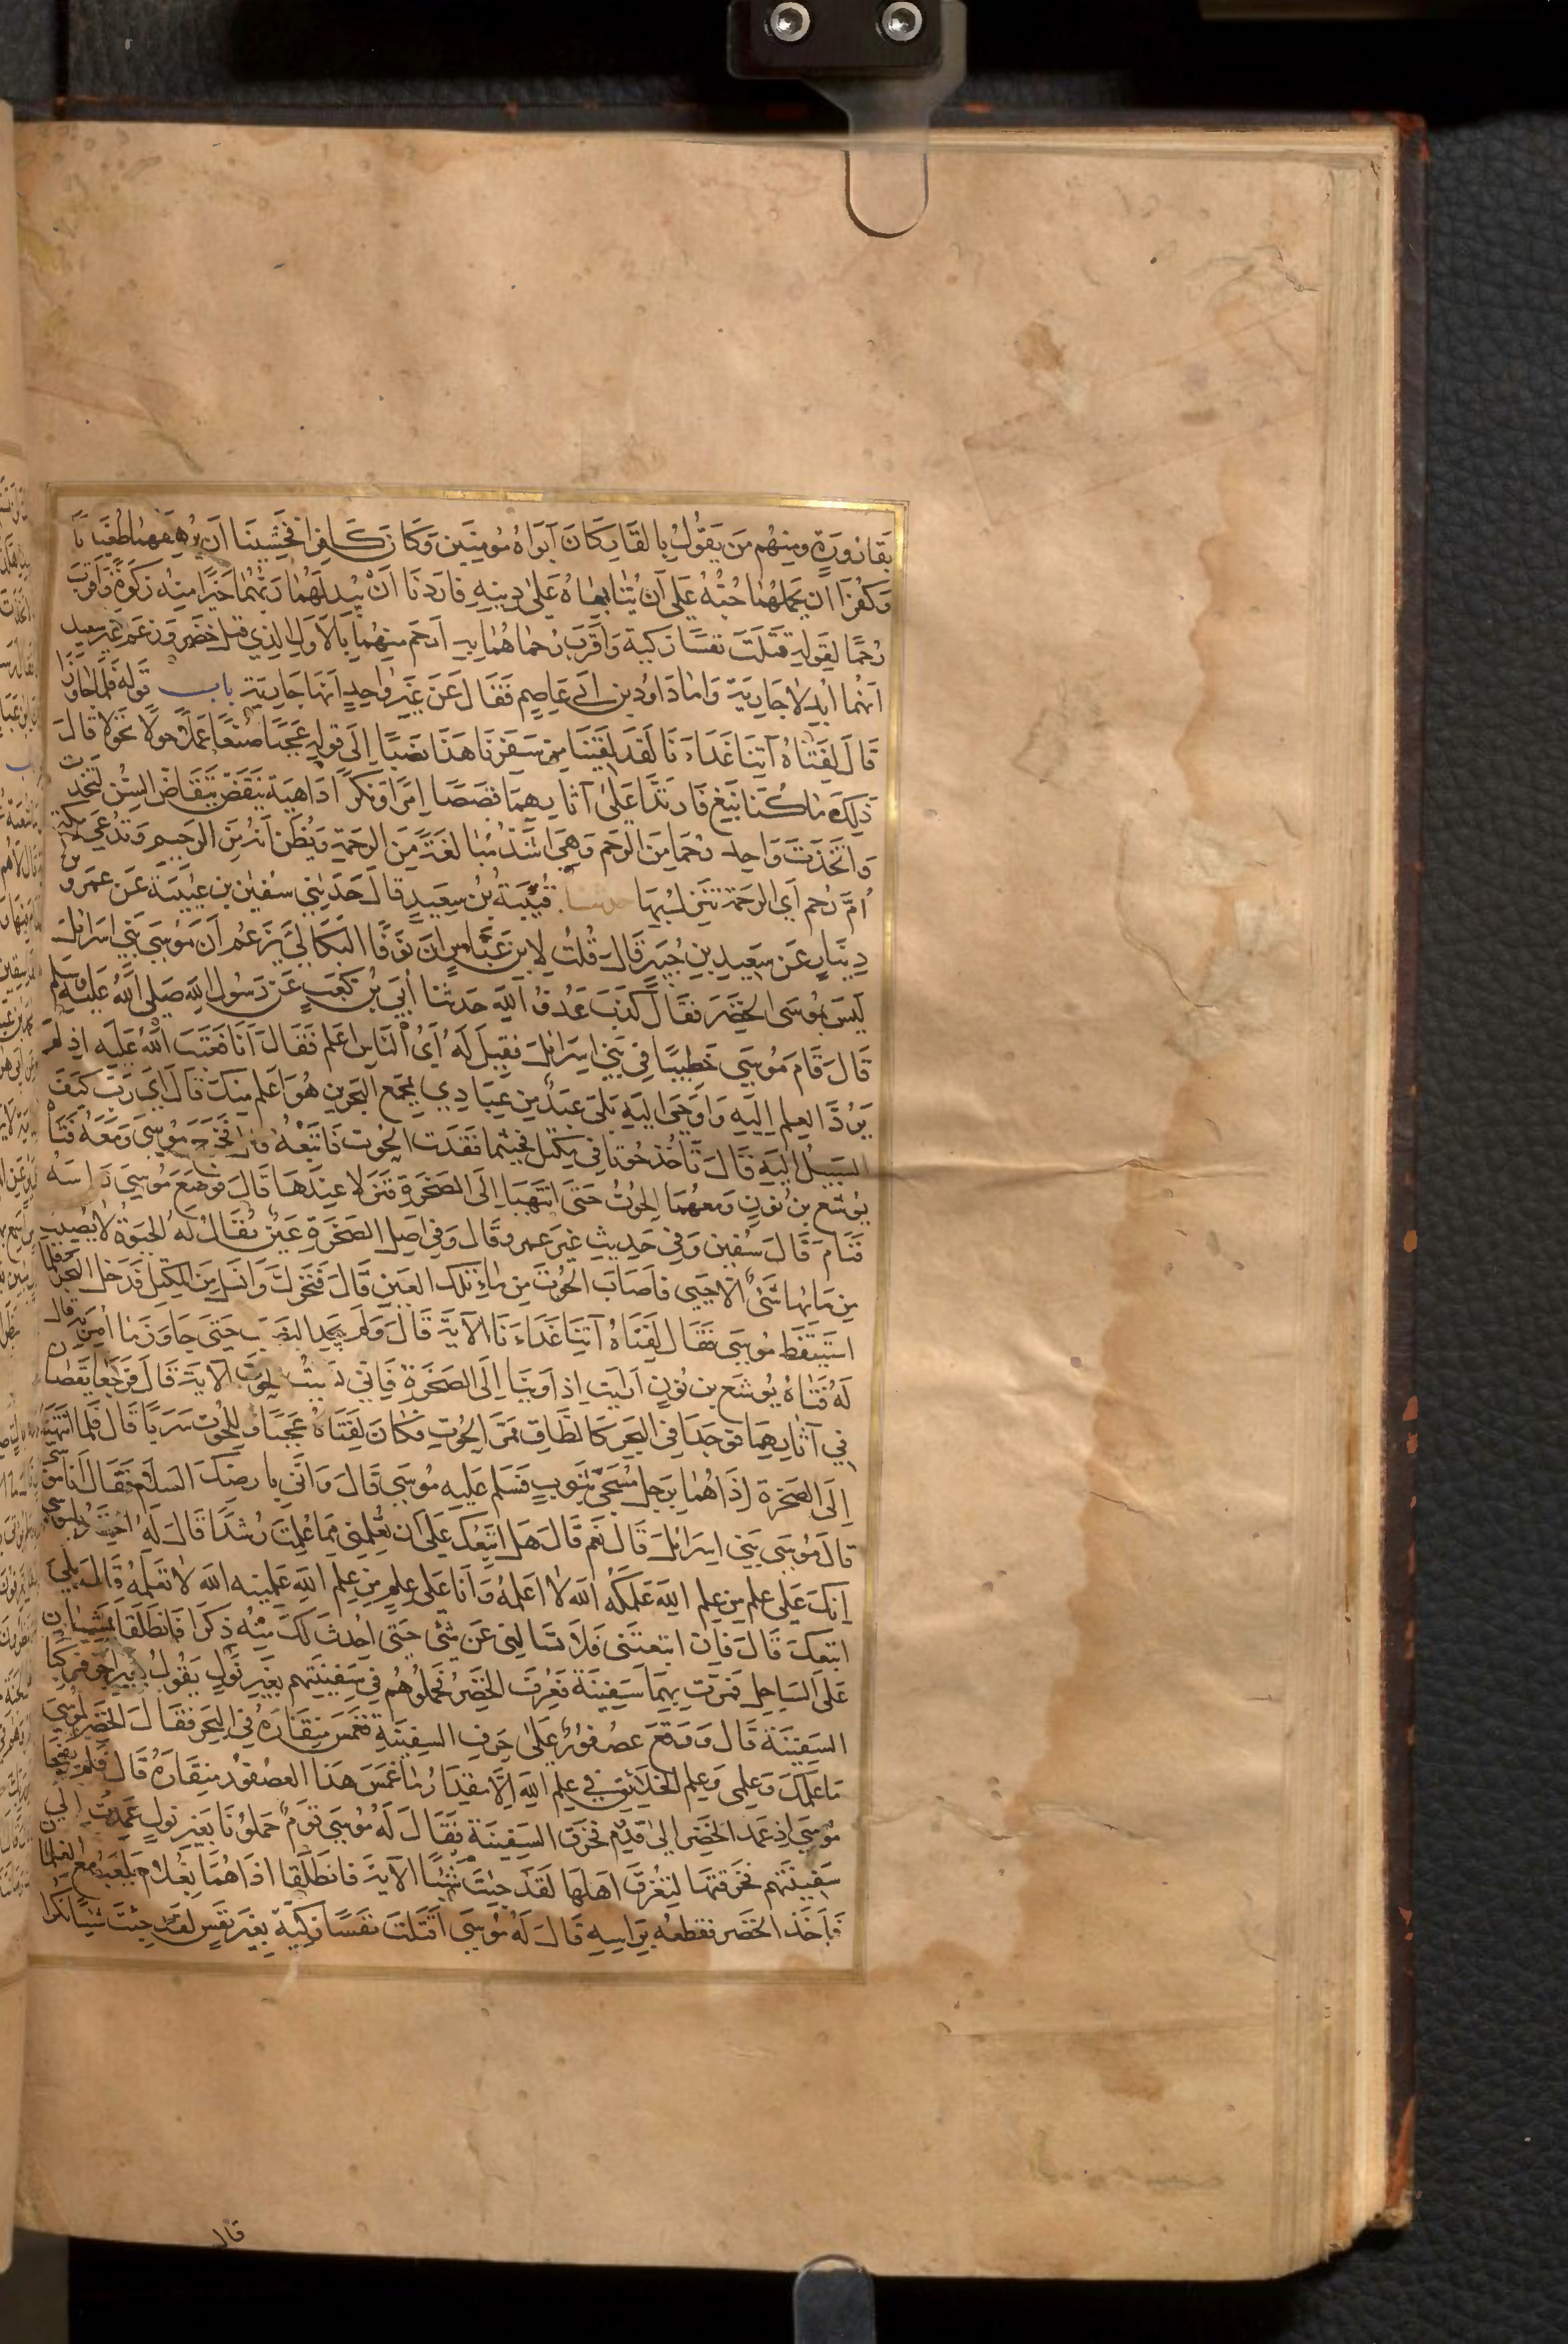 بقارورة ومنهم من يقول بالقار كان أبواه مؤمنين وكان كافرا فخشينا أن يرهقهما طغيانا
وكفرا أن يحملهما حبه على أن يتابعاه على دينه فأردنا أن يبدلهما ربهما خيرا منه زكوة وأقرب
رحما لقوله قتلت نفسا زكية وأقرب رحما هما به أرحم منهما بالأول الذي قتل خضر وزعم غير سعيد
أنهما أبدلا جارية وأما داود بن أبي عاصم فقال عن غير واحد أنها جارية باب قوله فلما جاوزا
قال لفتاه آتنا غداءنا لقد لقينا من سفرنا هذا نصبا إلى قوله عجبا صنعا عملا حولا تحولا قال
ذلك ما كنا نبغ فارتدا على آثارهما قصصا إمرا ونكرا داهية ينقض ينقاض السن لتخذت
واتخذت واحد رحما من الرحم وهي أشد مبالغة من الرحمة ويظن أنه من الرحيم وتدعى مكة
أم رحم أي الرحمة تنزل بها حدثنا قتيبة بن سعيد قال حدثني سفين بن عيينة عن عمرو بن
دينار عن سعيد بن جبير قال قلت لابن عباس إن نوفا البكالي يزعم أن موسى بني اسرائل
ليس بموسى الخضر فقال كذب عدو الله حدثنا أبي بن كعب عن رسول الله صلى الله عليه وسلم
قال قام موسى خطيبا في بني اسرائل فقيل له أي الناس أعلم فقال أنا فعتب الله عليه إذ لم
يرد العلم إليه وأوحى إليه بلى عبد من عبادي بمجمع البحرين هو أعلم منك قال أي رب كيف
السبيل إليه قال تأخذ حوتا في مكتل فحيثما فقدت الحوت فاتبعه قال فخرج موسى ومعه فتاه
يوشع بن نون ومعهما الحوت حتى انتهيا إلى الصخرة فنزلا عندها قال فوضع موسى رأسه
فنام قال سفين وفي حديث غير عمرو قال وفي أصل الصخرة عين يقال له الحيوة لا يصيب
من مائها شئ إلا حيي فأصاب الحوت من ماء تلك العين قال فتحرك وانسل من المكتل فدخل البحر فلما
استيقظ موسى فقال لفتاه آتنا غداءنا الآية قال ولم يجد النصب حتى جاوز ما أمر به قال
له فتاه يوشع بن نون أرأيت إذ أوينا إلى الصخرة فإني نسيت الحوت الآية قال فرجعا يقصان
في آثارهما فوجدا في البحر كالطاق ممر الحوت فكان لفتاه عجبا وللحوت سربا قال فلما انتهيا
إلى الصخرة إذا هما برجل مسجى بثوب فسلم عليه موسى قال وأنى بارضك السلام فقال أنا موسى
قال موسى بني اسرائل قال نعم قال هل اتبعك على أن تعلمني مما علمت رشدا قال له الخضر يا موسى
إنك على علم من علم الله علمكه الله لا أعلمه وأنا على علم من علم الله علمنيه الله لا تعلمه قال بلى
اتبعك قال فإن اتبعتني فلا تسألني عن شئ حتى أحدث لك منه ذكرا فانطلقا يمشيان
على الساحل فمرت بهما سفينة فعرف الخضر فحملوهم في سفينتهم بغير نول يقول بغير أجر فركبا
السفينة قال ووقع عصفور على حرف السفينة فغمس منقاره في البحر فقال الخضر لموسى
ما علمك وعلمي وعلم الخلائق في علم الله إلا مقدار ما غمس هذا العصفور منقاره قال فلم يفجأ
موسى إذ عمد الخضر إلى قدوم فخرق السفينة فقال له موسى قوم حملونا بغير نول عمدت إلى
سفينتهم فخرقتها لتغرق أهلها لقد جئت شيئا الآية فانطلقا إذا هما بغلام يلعب مع الغلمان
فأخذ الخضر فقطعه برأسه قال له موسى أقتلت نفسا زكية بغير نفس لقد جئت شيئا نكرا
قال